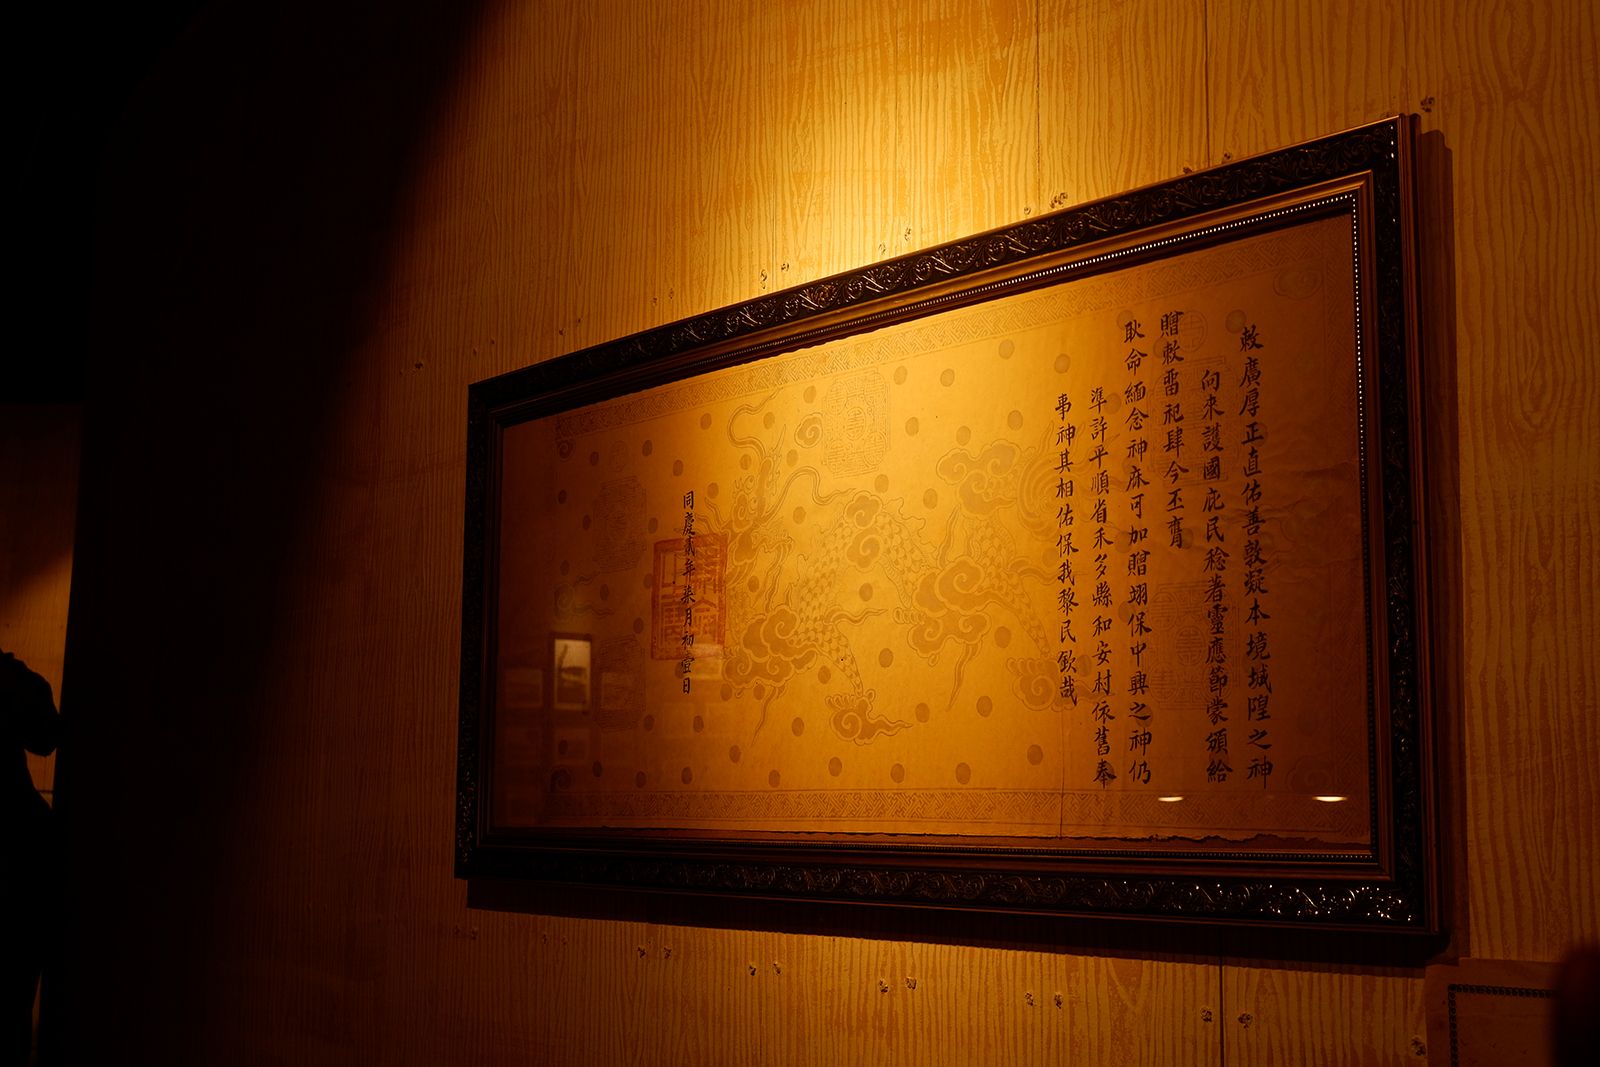 敕廣厚正直佑善敦凝本境城隍之神
向來護國庇民稔著靈應節蒙頒給
贈敕畱祀肆今丕膺
耿命緬念神庥可加贈翊保中興之神仍
準許平順省禾多縣和安村依舊奉
事神其相佑保我黎民欽哉
同慶貳年柒月初壹日